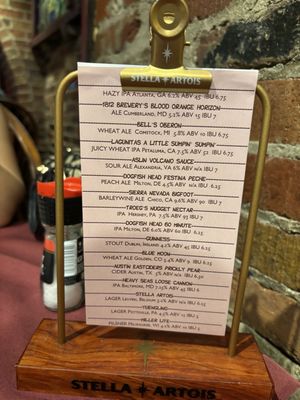 STELLA ARTOIS
HAZY IPA ATLANTA, GA 6.2% ABV 45 IBU 6.75
1812 BREWERY'S BLOOD ORANGE HORIZON
ALE CUMBERLAND, MD 5.2% ABV 15 IBU 7
BELL'S OBERON
WHEAT ALE COMSTOCK, MI 5.8% ABV 10 IBU 7
LAGUNITAS A LITTLE SUMPIN' SUMPIN'
JUICY WHEAT IPA PETALUMA, CA 7.5% ABV 52 IBU 6.75
ASLIN VOLCANO SAUCE
SOUR ALE ALEXANDRIA, VA 6% ABV N/A IBU 7
DOGFISH HEAD FESTINA PECHE
PEACH ALE MILTON, DE 4.5% ABV N/A IBU 6.25
SIERRA NEVADA BIGFOOT
BARLEYWINE ALE CHICO, CA 9.6% ABV 90 IBU 7
TROEG'S NUGGET NECTAR
IPA HERSHEY, PA 7.5% ABV 93 IBU 7
DOGFISH HEAD 60 MINUTE
IPA MILTON, DE 6.0% ABV 60 IBU
GUINNESS
STOUT DUBLIN, IRELAND 4.2% ABV 45 IBU 6.25
BLUE MOON
WHEAT ALE GOLDEN, CO 5.4% ABV 9 IBU
AUSTIN EASTCIDERS PRICKLY PEAR
CIDER AUSTIN, TX 5% ABV N/A IBU 6.25
HEAVY SEAS LOOSE CANNON
IPA BALTIMORE, MD 7.25% ABV 45 IBU 6
STELLA ARTOIS
LAGER LEUVEN, BELGIUM 5.2% ABV N/A IBU 6.25
YUENGLING
LAGER POTTSVILLE, PA 4.4% ABV 12 IBU 5
MILLER LITE
PILSNER MILWAUKEE, WI 4.2% ABV 10 IBU 5
STELLA ARTOIS